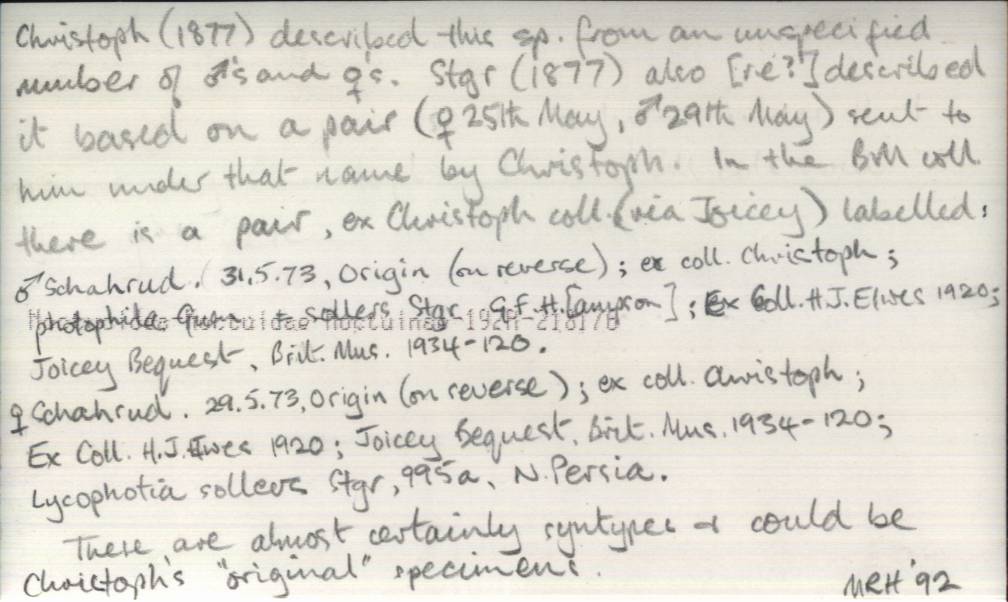 Christoph (1877) described this sp. from an unspecified
number of ♂'s and ♀'s. Stgr (1877) also [re?] described
it based on a pair (♀ 25th May, ♂ 29th May) sent to
him under that name by Christoph. In the BM coll.
there is a pair, ex Christoph coll. (via Joicey) labelled:
♂ Schahrud. 31.5.73, Origin (on reverse); ex coll. Christoph;
photophila Guen + sollers Stgr G.F.H.[ampson]; Ex Coll. H.J. Elwes 1920;
Noctuidae Noctuinae
Joicey Bequest, Brit. Mus. 1934-120.
♀ Schahrud. 29.5.73, Origin (on reverse); ex coll. Christoph;
Ex Coll. H.J. Elwes 1920; Joicey Bequest, Brit. Mus. 1934-120;
Lycophotia sollers Stgr, 995a, N. Persia.
These are almost certainly syntypes & could be
Christoph's "original" specimens.
MRH '92